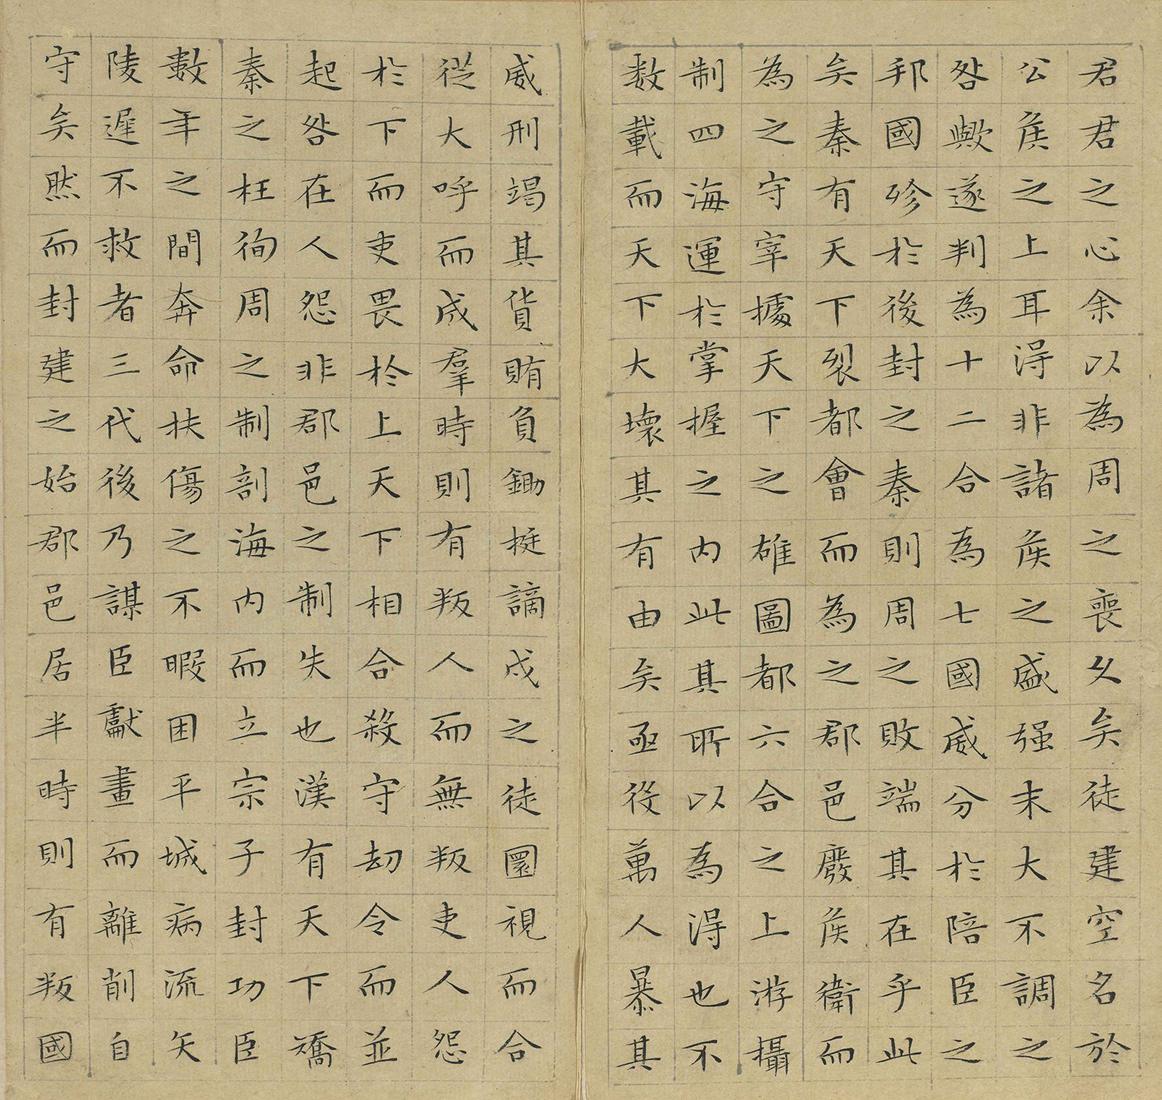 君君之心余以為周之喪久矣徒建空名於
公侯之上耳得非諸侯之盛强末大不調之
咎歟遂判為十二合為七國威分於陪臣之
邦國殄於後封之秦則周之敗端其在乎此
矣秦有天下裂都會而為之郡邑廢侯衛而
為之守宰據天下之雄圖都六合之上游攝
制四海運於掌握之内此其所以為得也不
数載而天下大壞其有由矣亟役萬人暴其
威刑竭其貨賄負鋤挺謫戍之徒圜視而合
從大呼而成羣時則有叛人而無叛吏人怨
於下而吏畏於上天下相合殺守刧令而並
起咎在人怨非郡邑之制失也漢有天下矯
秦之枉徇周之制剖海内而立宗子封功臣
數年之間奔命扶傷之不暇困平城病流矢
陵遲不救者三代後乃謀臣獻畫而離削自
守矣然而封建之始郡邑居半時則有叛國